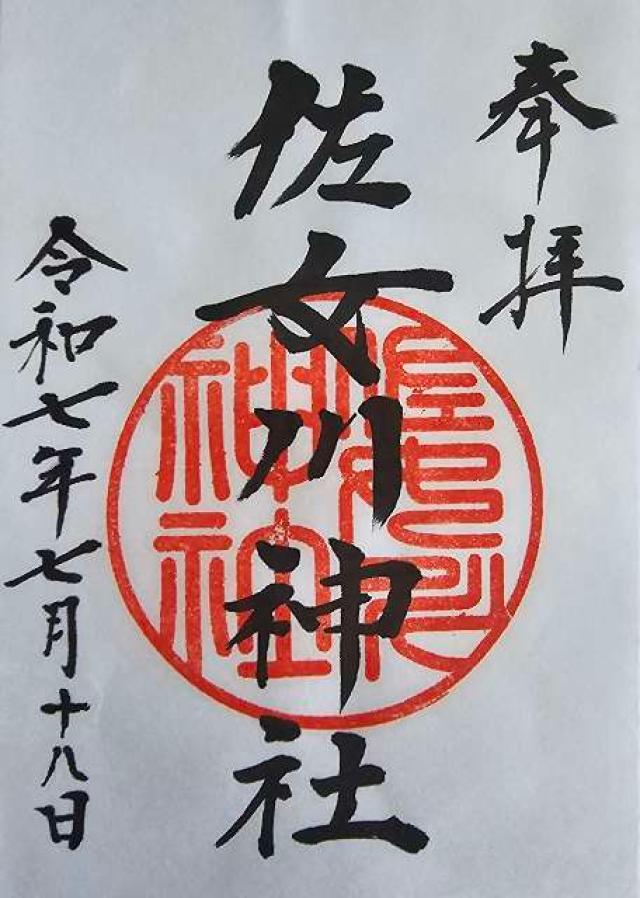 奉拝
佐女川神社
令和七年七月十八日